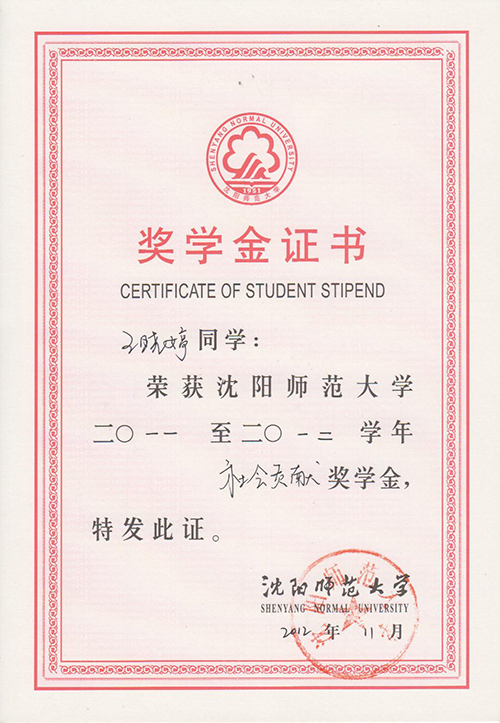 SHENYANG NORMAL UNIVERSITY
1951
沈阳师范大学
奖学金证书
CERTIFICATE OF STUDENT STIPEND
王晓婷同学：
荣获沈阳师范大学
二〇一一 至二〇一二 学年
社会贡献奖学金，
特发此证。
沈阳师范大学
SHENYANG NORMAL UNIVERSITY
2012 年 11 月
沈阳师范大学